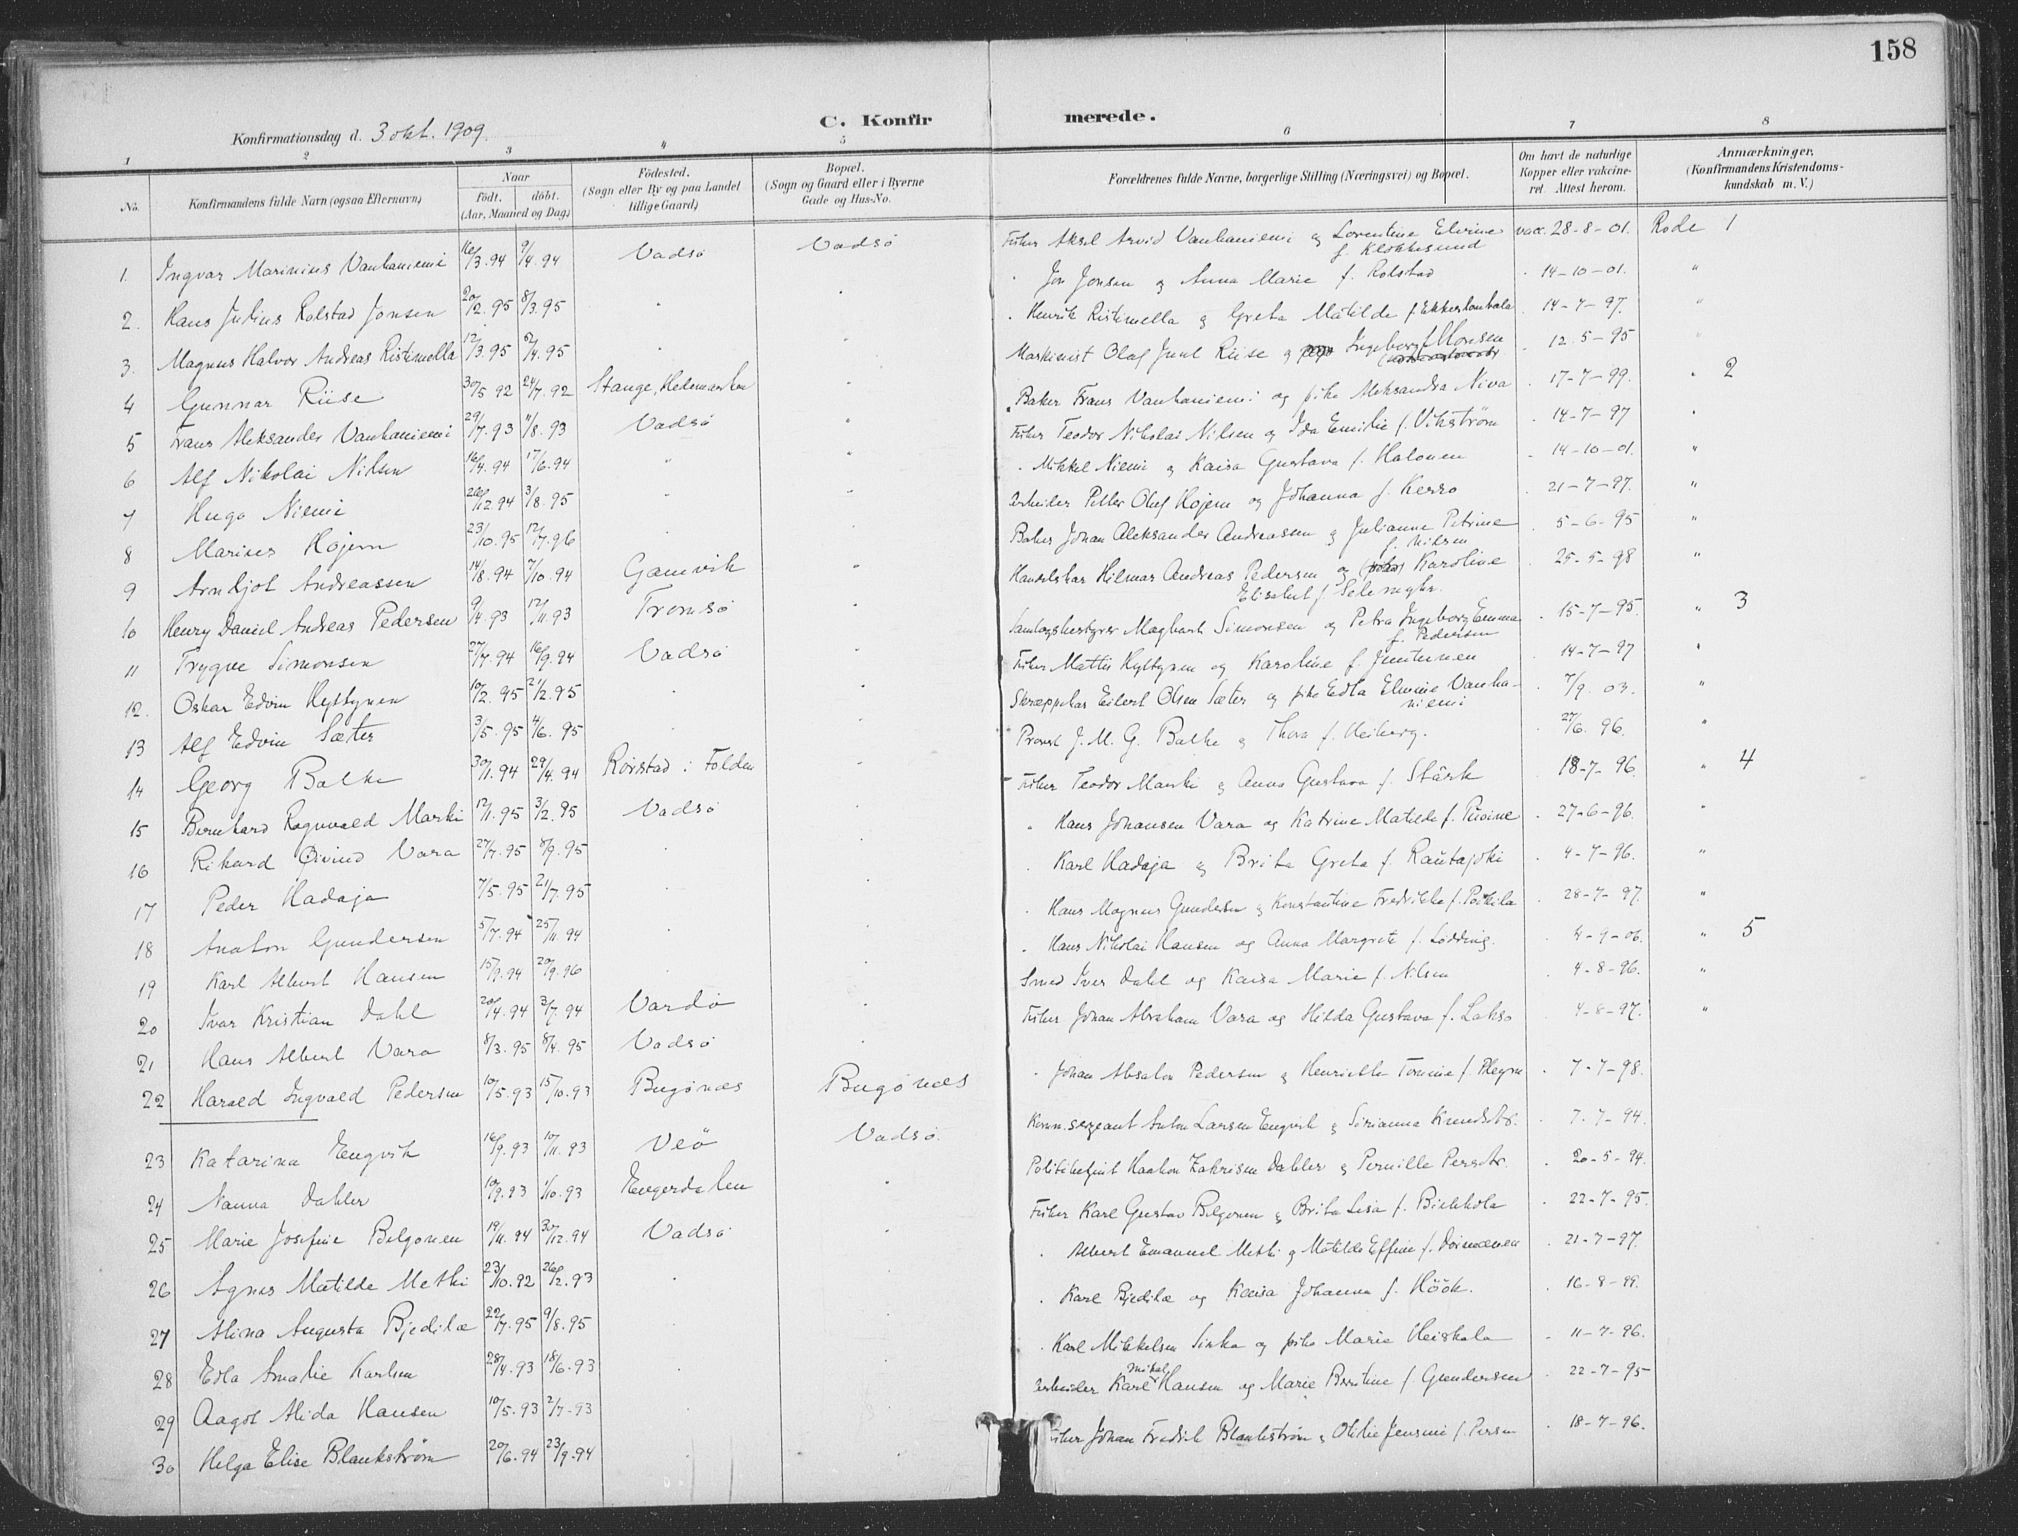 158
C. Konfirmerede.
Konfirmationsdag d. 3 okt. 1909.
1 2 3 4 5 6 7 8
No. Konfirmandens fulde Navn (ogsaa Efternavn) Naar født. døbt. (Aar, Maaned og Dag) Födested. (Sogn eller By og paa Landet tillige Gaard) Bopæl. (Sogn og Gaard eller i Byerne Gade og Hus-No. Forældrenes fulde Navne, borgerlige Stilling (Næringsvei) og Bopæl. Om havt de naturlige Kopper eller vakcineret. Attest herom. Anmærkninger, (Konfirmandens Kristendomskundskab m. V.)
1. Ingvar Marinius Vanhaniemi 16/3.94 9/4.94 Vadsø Vadsø Fisker Aksel Arvid Vanhaniemi og Lorentine Elvine f. Klokkesund vacc. 28-8-01. Rode 1
2. Hans Julius Rolstad Jonsen 20/2.95 8/3.95 " " " Jon Jonsen og Anna Marie f. Rolstad " 14-10-01. "
3. Magnus Halvor Andreas Ristimella 12/3.95 6/4.95 " " " Henrik Ristimella og Greta Matilde f. " 14-7-97. "
4 Gunnar Riise 30/5 92 24/7.92 Stange, Hedemarken " Maskinist Olaf Juul Riise og Ingeborg f. Monsen " 12.5-95 "
5 Frans Aleksander Vanhaniemi 29/7.93 11/8.93 Vadsø " Baker Frans Vanhaniemi og pike Aleksandra Niva " 17-7-99. " 2
6 Alf Nikolai Nilsen 16/4.94 17/6.94 " " Fisker Teodor Nikolai Nilsen og Ida Emilie f. Vikström " 14-7-97 "
7 Hugo Niemi 26/12.94 3/8.95 " " " Mikkel Niemi og Kaisa Gustava f. Halonen " 14-10-01. "
8 Marius Hojem 23/10.95 12/7.96 " Arbeider Petter Olaf Hojem og Johanna f. Kerso " 21-7-97. "
9 Arnljot Andreassen 14/8.94 7/10.94 Gamvik " Baker Johan Aleksander Andreassen og Julianne Petrine f. Nilsen " 5-6-95 "
10 Henry Daniel Andreas Pedersen 9/4.93 12/11.93 Tromsø " Handelskar Hilmar Andreas Pedersen og Karoline Elisabet f. " 25-5-98 "
11 Trygve Simonsen 27/7.94 16/9.94 Vadsø " Samlagsbestyrer Simonsen og Petra Ingeborg Emma f. Pedersen " 15-7-95. " 3
12. Oskar Edvin Hyttynen 10/2.95 21/2.95 " " Fisker Mattis Hyttynen og Karoline f. Juntunen " 14-7-97 "
13 Alf Edvin Sæter 3/5.95 4/6.95 " " Skræppekar Eilert Olsen Sæter og pike Edla Elvine Vanhaniemi " 7/9. 03. "
14 Georg Balke 30/1.94 29/4.94 Rørstad i Folden " Provst J. M. G. Balke og Thora f. Heiberg. " 27/6. 96. "
15 Bernhard Ragnvald Marki 12/11.95 3/2.95 Vadsø " Fisker Teodor Marki og Anna Gustava f. Stärk " 18-7-96. " 4
16 Rikard Øivind Vara 27/7.95 8/9.95 " " " Hans Johansen Vara og Katrine Matilde f. " 27-6-96. "
17 Peder Hadaja 7/5.95 21/7.95 " " " Karl Hadaja og Brita Greta f. Rautajoki " 4-7-96. "
18 Anaton Gundersen 5/7.94 25/11.94 " " " Hans Magnus Gundersen og Konstantine Fredrikke f. " 28-7-97. "
19 Karl Albert Hansen 15/9.94 20/9.96 " " " Hans Nikolai Hansen og Anna Margrete f. Lødding. " 4-9-06. " 5
20 Ivar Kristian Dahl 20/4.94 3/7.94 Vardø " Smed Iver Dahl og Kaisa Marie f. Nilsen " 4-8-96. "
21 Hans Albert Vara 8/3.95 8/4.95 Vadsø " Fisker Johan Abraham Vara og Hilda Gustava f. Lakso " 4-8-97. "
22 Harald Ingvald Pedersen 10/5.93 15/10.93 Bugønæs Bugønæs " Johan Absalon Pedersen og Henriette " 7-7-98.
23 Katarina Engvik 16/9.93 10/11.93 Veö Vadsø. Komm.sergeant Anton Larsen Engvik og Sirianna Knudsdtr. " 7.7-94.
24 Nanna Dahler 10/9.93 1/10.93 Engerdalen " Politibetjent Haakon Zakrisen Dahler og Pernille Persdtr. " 20-5-94.
25 Marie Josefine Belgonen 19/11.94 30/12.94 Vadsø " Fisker Karl Gustav Belgonen og Brita Lisa f. " 22-7-95.
26 Agnes Matilde Metti 23/10.92 26/2.93 " " " Albert Emanuel Metti og Matilde Effine f. " 21-7-97.
27 Alina Augusta Bjedilæ 22/7.95 9/8.95 " " " Karl Bjedilæ og Kaisa Johanna f. Höök. " 16-8-99.
28 Edla Amalie Karlsen 28/4.93 18/6.93 " " " Karl Mikkelsen Sirka og pike Marie Heiskala " 11-7-96.
29 Aagot Alida Hansen 10/5.93 2/7-93 " " Arbeider Karl Mikal Hansen og Marie Berntine f. Gundersen " 22-7-95
30 Helga Elise Blankström 20/6.94 23/9.94 " Fisker Johan Fredrik Blankström og Otilie Jensine f. Persen " 18-7-96.